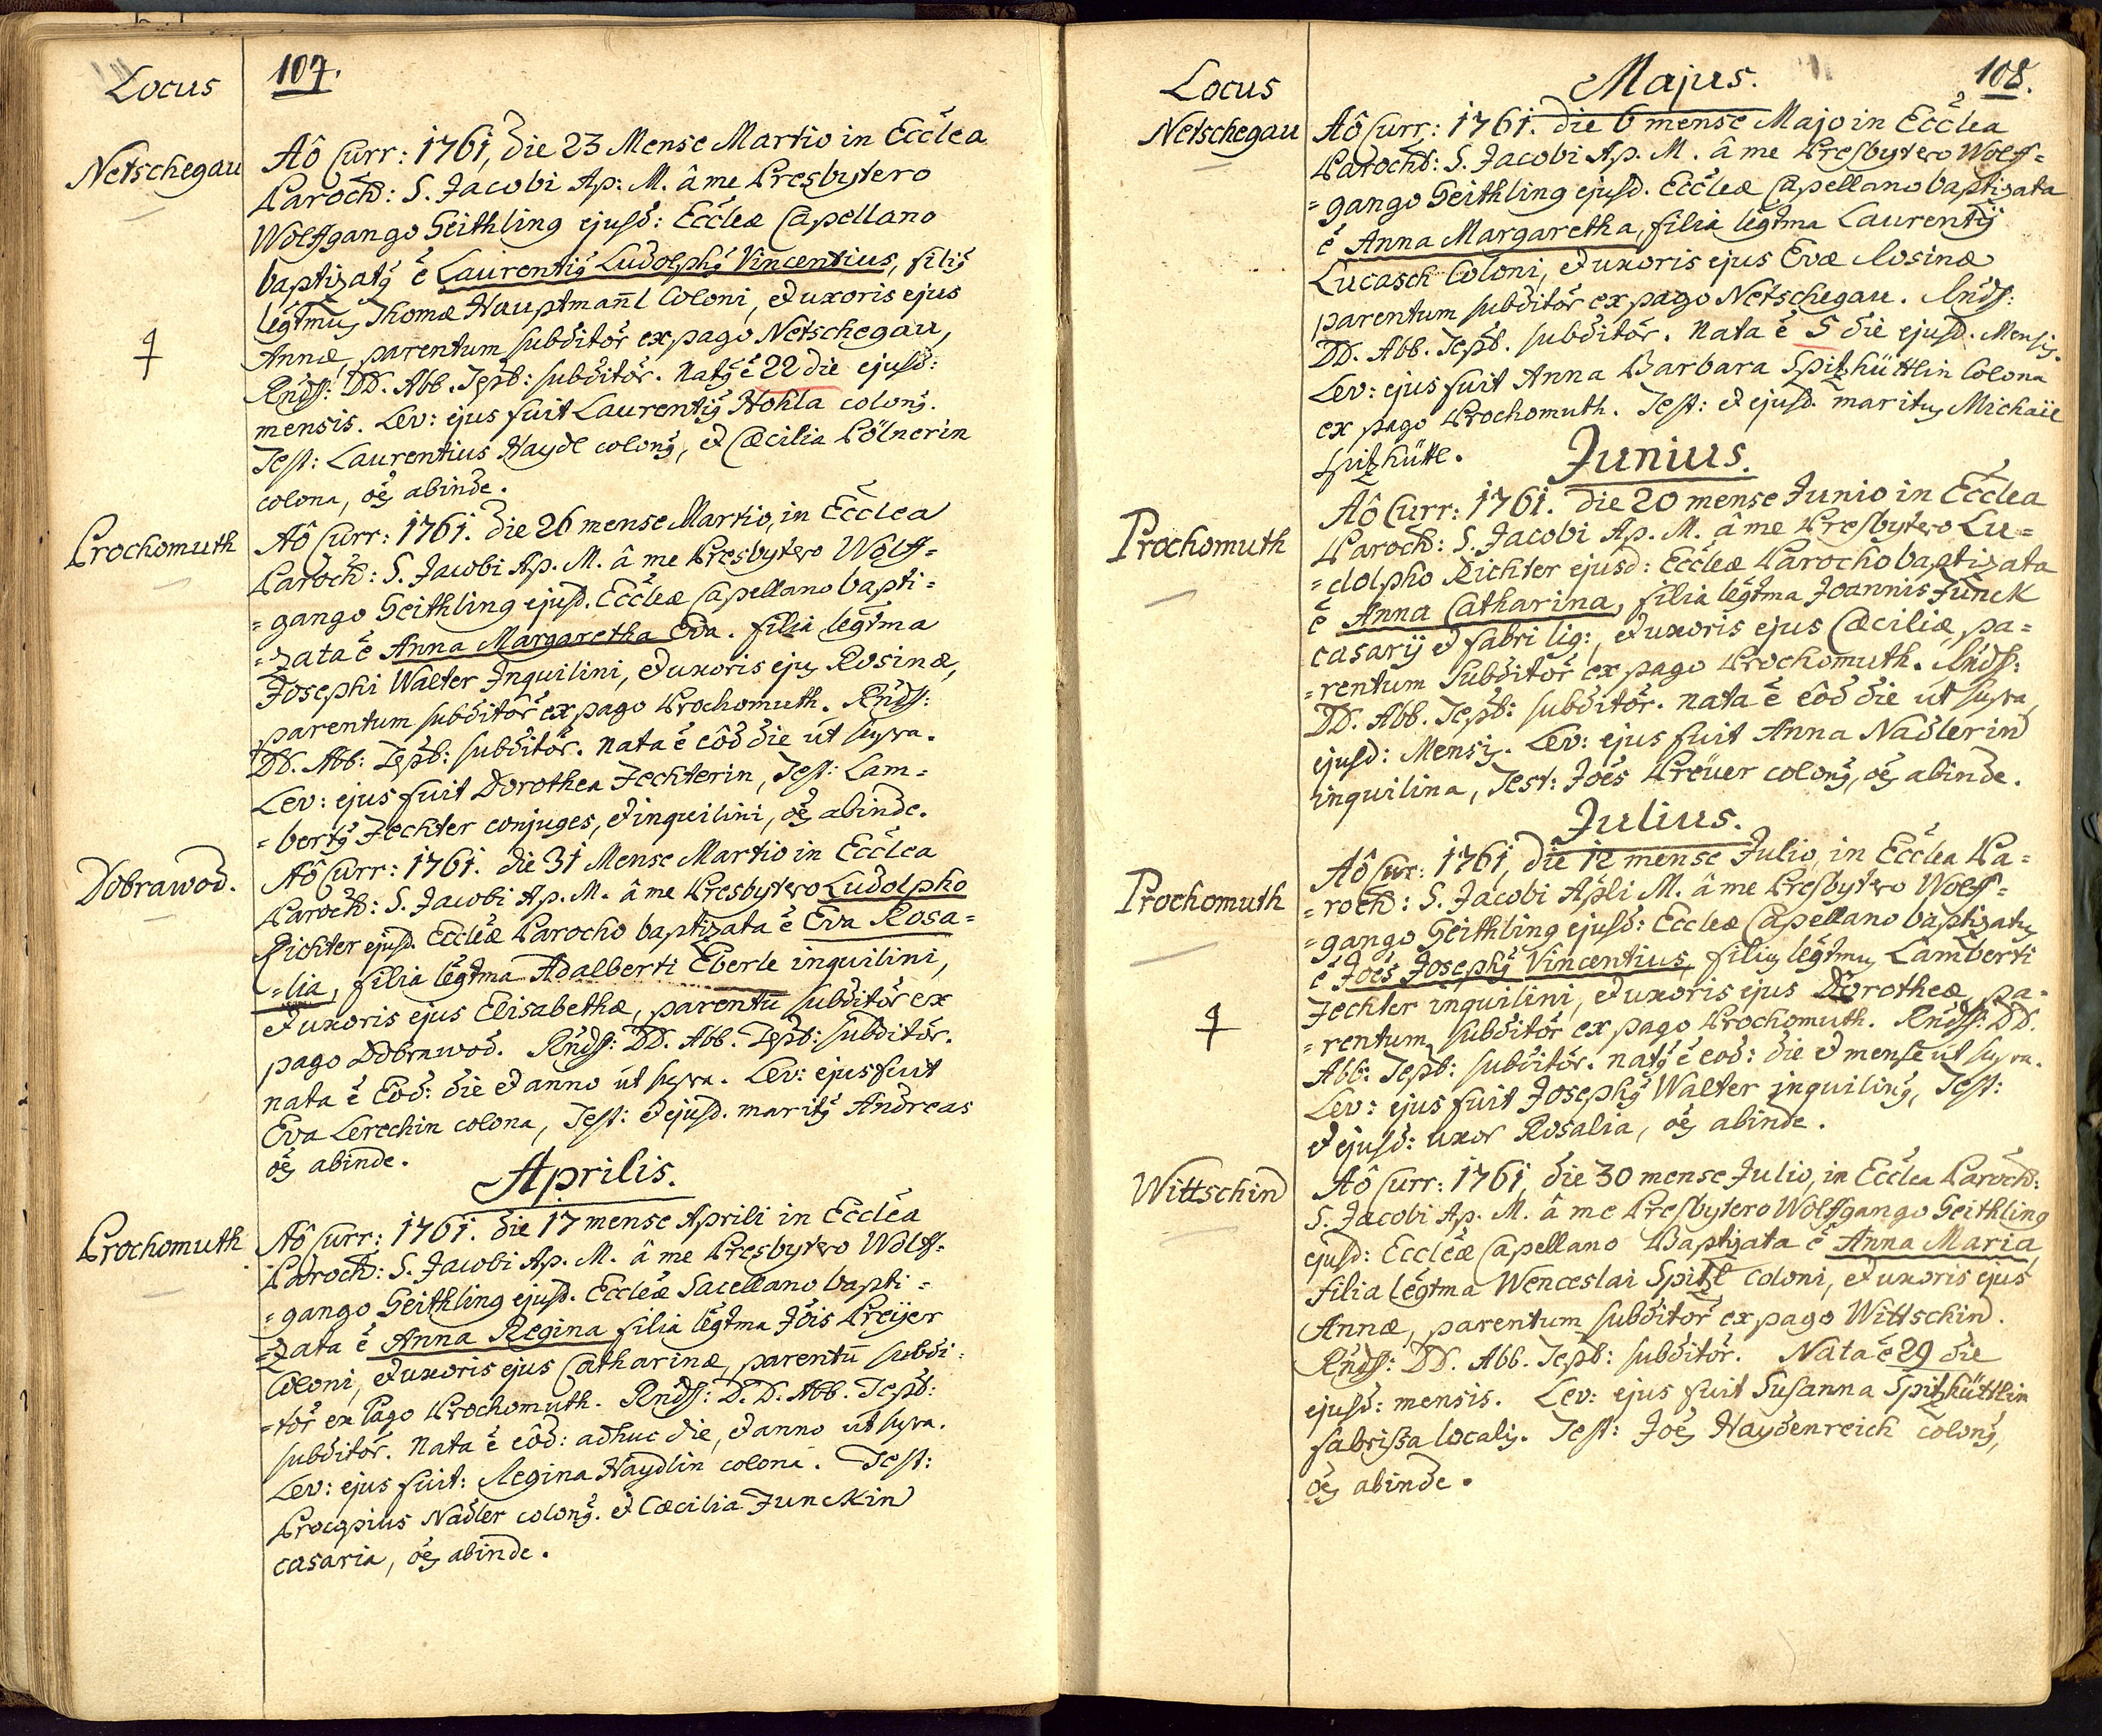 Locus
107.
Netschegau
Aô Curr: 1761, die 23 Mense Martio in Ecclea
Paroch: S. Jacobi Ap: M. â me Presbytero
Wolffgango Seithling ejusd: Eccleæ Capellano
baptizatq é Laurentiq Ludolphq Vincentius, filiq
legtmus Thomæ Hauptmañl Coloni, et uxoris ejus
Annæ, parentum subditor ex pago Netschegau,
Rndss: DD. Abb. Tepb: subditor. Natq é 22 die ejusd:
mensis. Lev: ejus fuit Laurentiq Hohla colonq.
Test: Laurentius Haydl colonq, et Cæcilia Pölnerin
colona, oés abinde.
Prochomuth
Aô Curr: 1761. die 26 mense Martio, in Ecclea
Paroch: S. Jacobi Ap. M. â me Presbytero Wolff=
=gango Seithling ejusd. Eccleæ Capellano bapti=
=zata é Anna Margaretha Eva. filia legtma
Josephi Walter Inquilini, et uxoris ejus Rosinæ,
parentum subditor ex pago Prochomuth. Rndss:
DD. Abb: Tepb: subditor. Nata é eôd die ut supra.
Lev: ejus fuit Dorothea Fechterin, Test: Lam=
=bertq Fechter conjuges, et inquilini, oés abinde.
Dobrawod.
Aô Curr: 1761. die 31 Mense Martio in Ecclea
Paroch: S. Jacobi Ap. M. â me Presbytero Ludolpho
Richter ejusd. Eccleæ Parocho baptizata é Eva Rosa=
=lia, filia legtma Adalberti Eberle inquilini,
et uxoris ejus Elisabethæ, parentū subditor ex
pago Dobrawod. Rndss: DD. Abb. Tepb: subditor.
nata é Eôd: die et anno ut supra. Lev: ejus fuit
Eva Lerechin colona, Test: et ejusd. maritq Andreas
oés abinde.
Aprilis.
Prochomuth
Aô Curr: 1761. die 17 mense Aprili in Ecclea
Paroch: S. Jacobi Ap. M. â me Presbytero Wolff=
=gango Seithling ejusd. Eccleæ Sacellano bapti=
=zata é Anna Regina filia legtma Jois Preijer
Coloni, et uxoris ejus Catharinæ, parentū subdi=
=tor ex Pago Prochomuth. Rndss: D. D. Abb. Tepb:
subditor. Nata é eôd: adhuc die, et anno ut supra.
Lev: ejus fuit: Regina Haydlin colona. Test:
Procopius Nadler colonq. et Cæcilia Funckin
casaria, oés abinde.
Locus
Majus.
108.
Netschegau
Aô Curr: 1761. die 6 mense Majo in Ecclea
Paroch: S. Jacobi Ap. M. â me Presbytero Wolff=
=gango Seithling ejusd. Eccleæ Capellano baptizata
é Anna Margaretha, filia legtma Laurentij
Lucasch Coloni, et uxoris ejus Evæ Rosinæ
parentum subditor ex pago Netschegau. Rndss:
DD. Abb. Tepb. subditor. Nata é 5 die ejusd. Mensis.
Lev: ejus fuit Anna Barbara Spitzhüttlin Colona
ex pago Prochomuth. Test: et ejusd. maritus Michaël
Spitzhüttl.
Junius.
Prochomuth
Aô Curr: 1761. die 20 mense Junio in Ecclea
Paroch: S. Jacobi Ap. M. â me Presbytero Lu=
=dolpho Richter ejusd: Eccleæ Parocho baptizata
é Anna Catharina, filia legtma Joannis Funck
casarij et fabri lig:, et uxoris ejus Cæciliæ pa=
=rentum Subditor ex pago Prochomuth. Rndss:
DD. Abb. Tepb: subditor. Nata é eôd die ut supra
ejusd: Mensis. Lev: ejus fuit Anna Nadlerin
inquilina, Test: Joés Preüer colonq, oés abinde.
Julius.
Prochomuth
Aô Curr: 1761, die 12 mense Julio, in Ecclea Pa=
=roch: S. Jacobi Apli M. â me Presbytero Wolff=
=gango Seithling ejusd: Eccleæ Capellano baptizatus
é Joés Josephq Vincentius, filius legtmus Lamberti
Fechter inquilini, et uxoris ejus Dorotheæ, pa=
=rentum subditor ex pago Prochomuth. Rndss: DD.
Abb: Tepb: subditor. natq é eod: die et mense ut supra.
Lev: ejus fuit Josephq Walter inquilinq, Test:
et ejusd: uxor Rosalia, oés abinde.
Wittschin
Aô Curr: 1761, die 30 mense Julio, in Ecclea Paroch:
S. Jacobi Ap. M. â me Presbytero Wolffgango Seithling
ejusd: Eccleæ Capellano Baptizata é Anna Maria
filia legtma Wenceslai Spitzl coloni, et uxoris ejus
Annæ, parentum subditor ex pago Wittschin.
Rndss: DD. Abb. Tepb: subditor. Nata é 29 die
ejusd: mensis. Lev: ejus fuit Susanna Spitzhüttlin
fabrissa localis. Test: Joés Haydenreich colonq,
oés abinde.